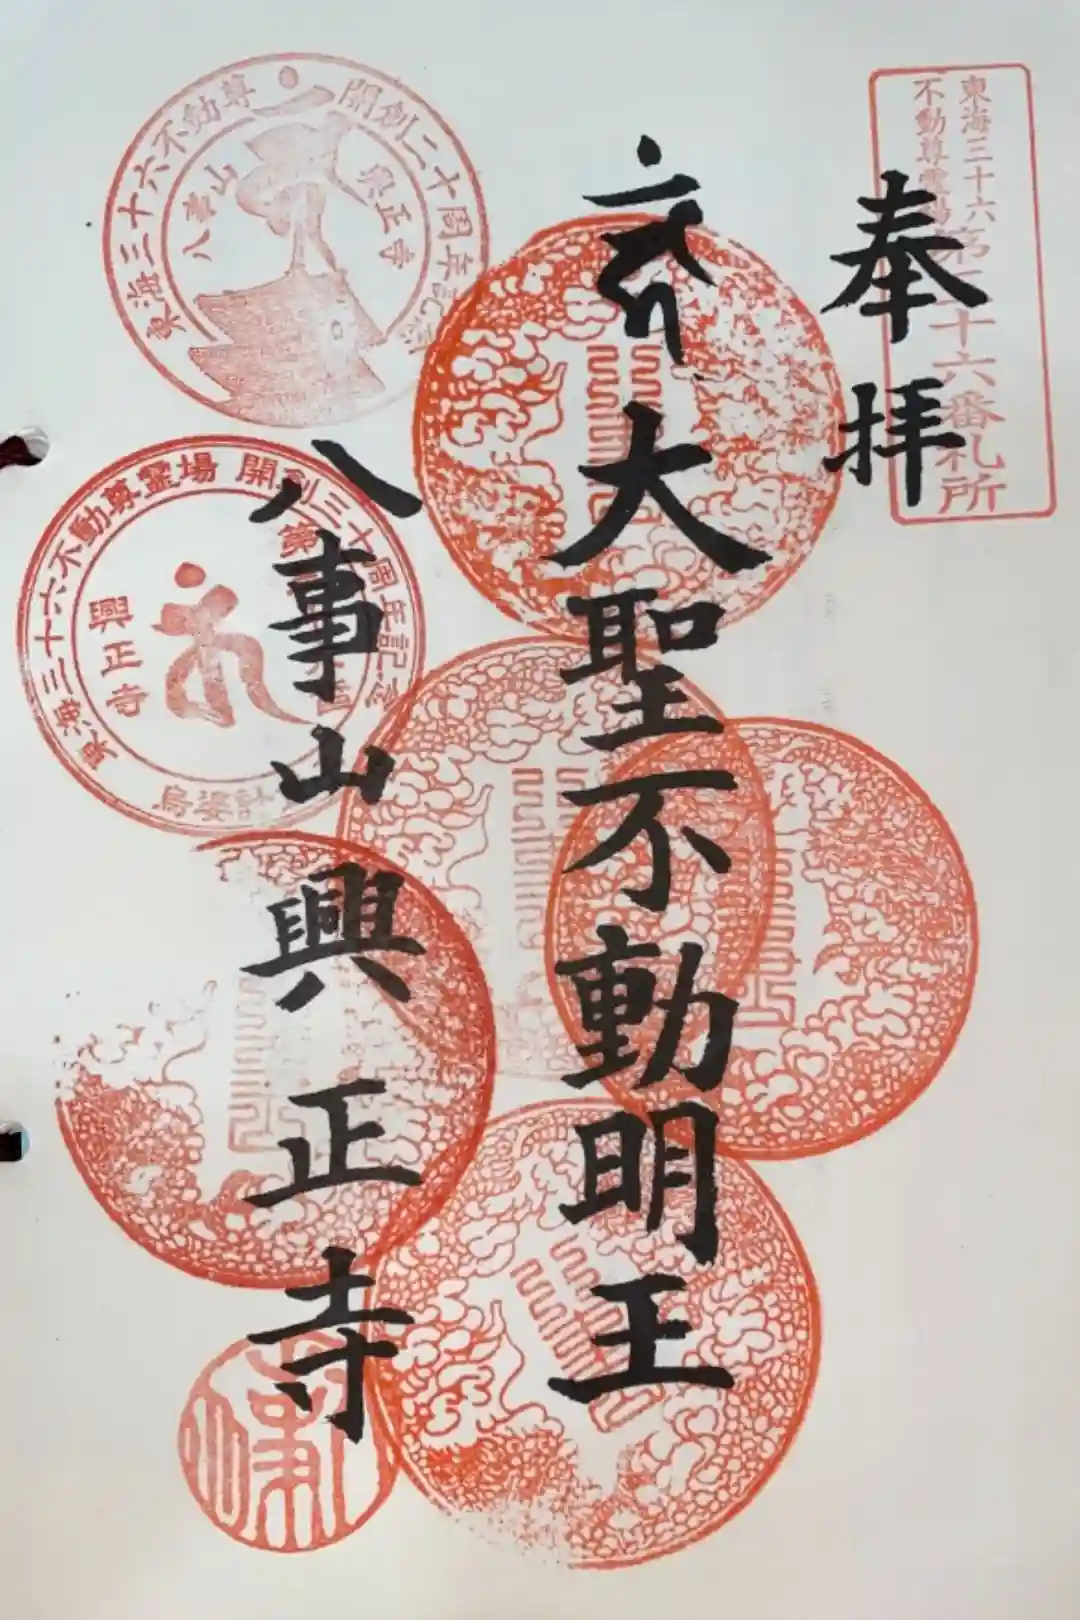 東海三十六
不動尊霊場
十六番札所
奉拝
大聖不動明王
八事山 興正寺
東海三十六不動尊 開創二十周年記念
八事山
興正寺
東海三十六不動尊霊場 開創三十周年記念
興正寺